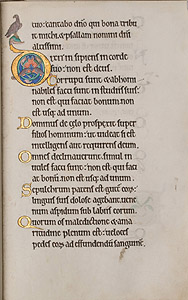 uo: cantabo dño qui bona tribu
it michi, & psallam nomini dñi
altissimi.
Dixit insipiens in corde
suo: non est deus.
Corrupti sunt & abhomi
nabiles facti sunt in studiis suis:
non est qui faciat bonum, non
est usq; ad unum.
Dominus de celo prospexit super
filios hominum: ut uideat si est
intelligens aut requirens deum.
Omnes declinauerunt, simul in
utiles facti sunt: non est qui faciat
bonum, non est usq; ad unum.
Sepulchrum patens est guttur eorum,
linguis suis dolose agebant, uene
num aspidum sub labiis eorum.
Quorum os maledictione & ama
ritudine plenum est: ueloces
pedes eorum ad effundendum sanguinem.